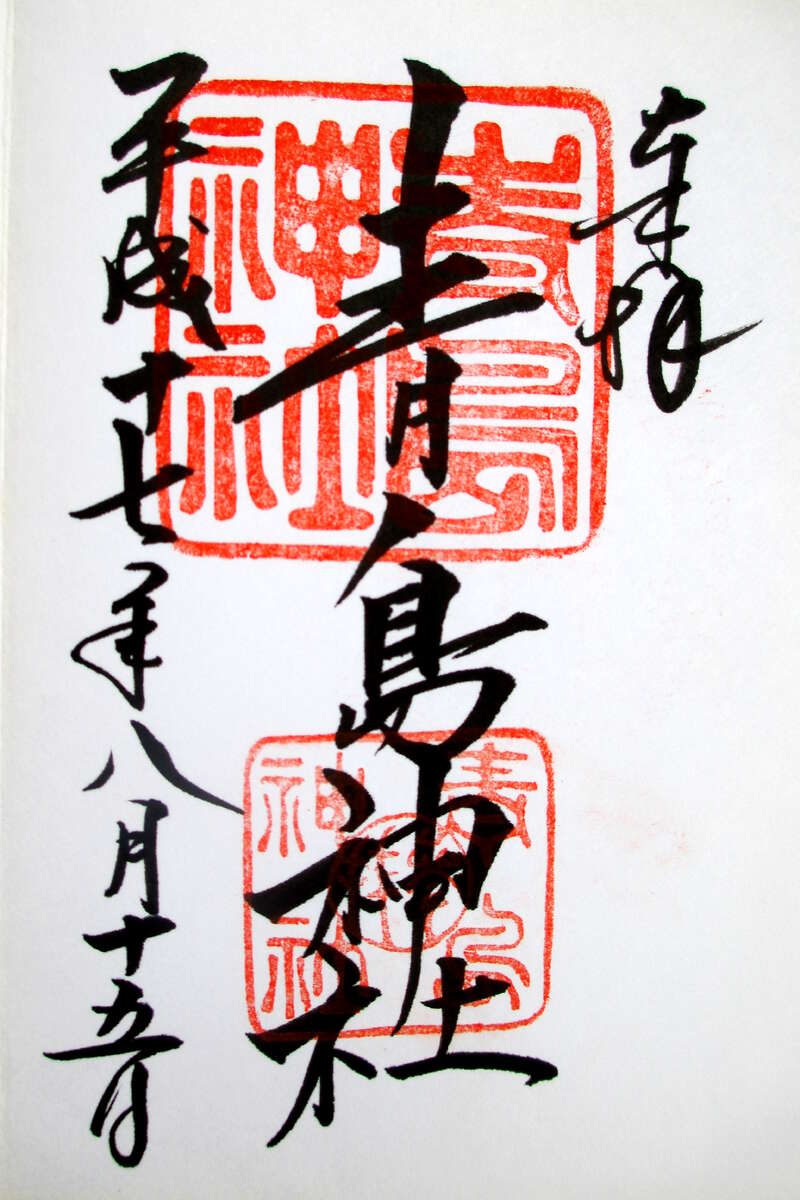 奉拝
青島神社
平成十七年八月十五日
青島神社
青島神社